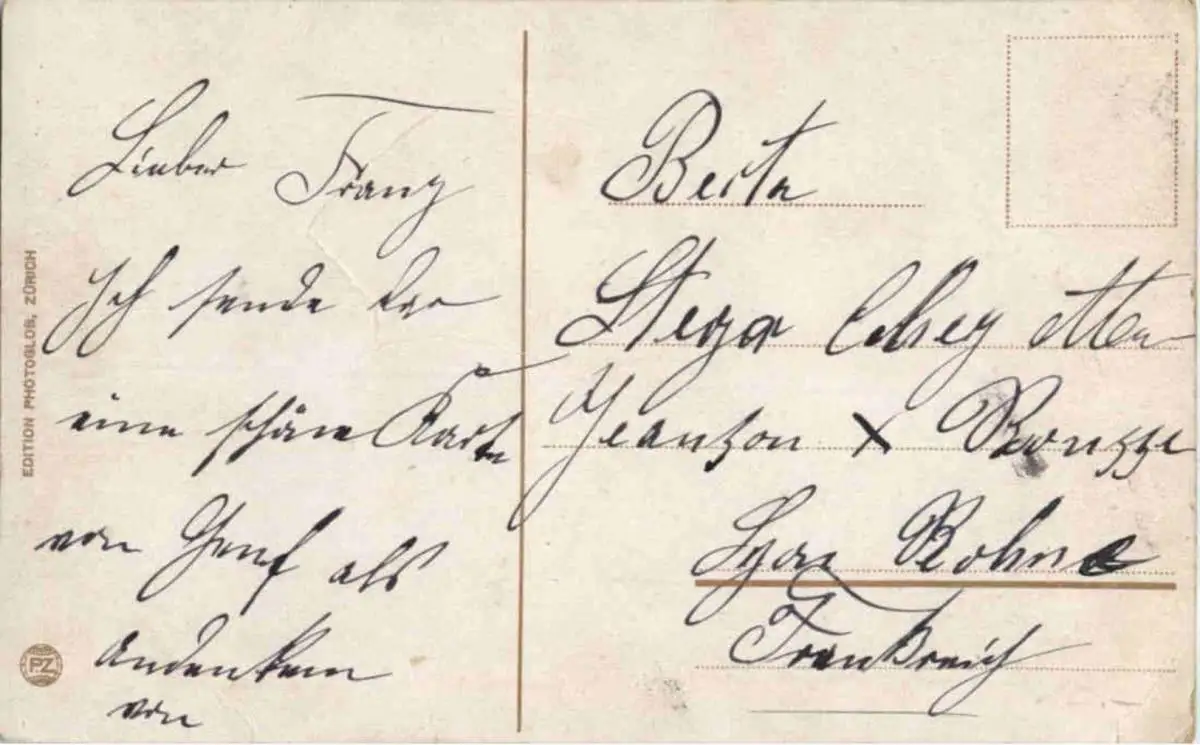 Lieber Franz
Ich sende dir
eine schöne Karte
von Genf als
Andenken
von
Berta
Steger chez
Jeanson x
Lyon Rohne
Frankreich
EDITION PHOTOGLOB, ZÜRICH
PZ